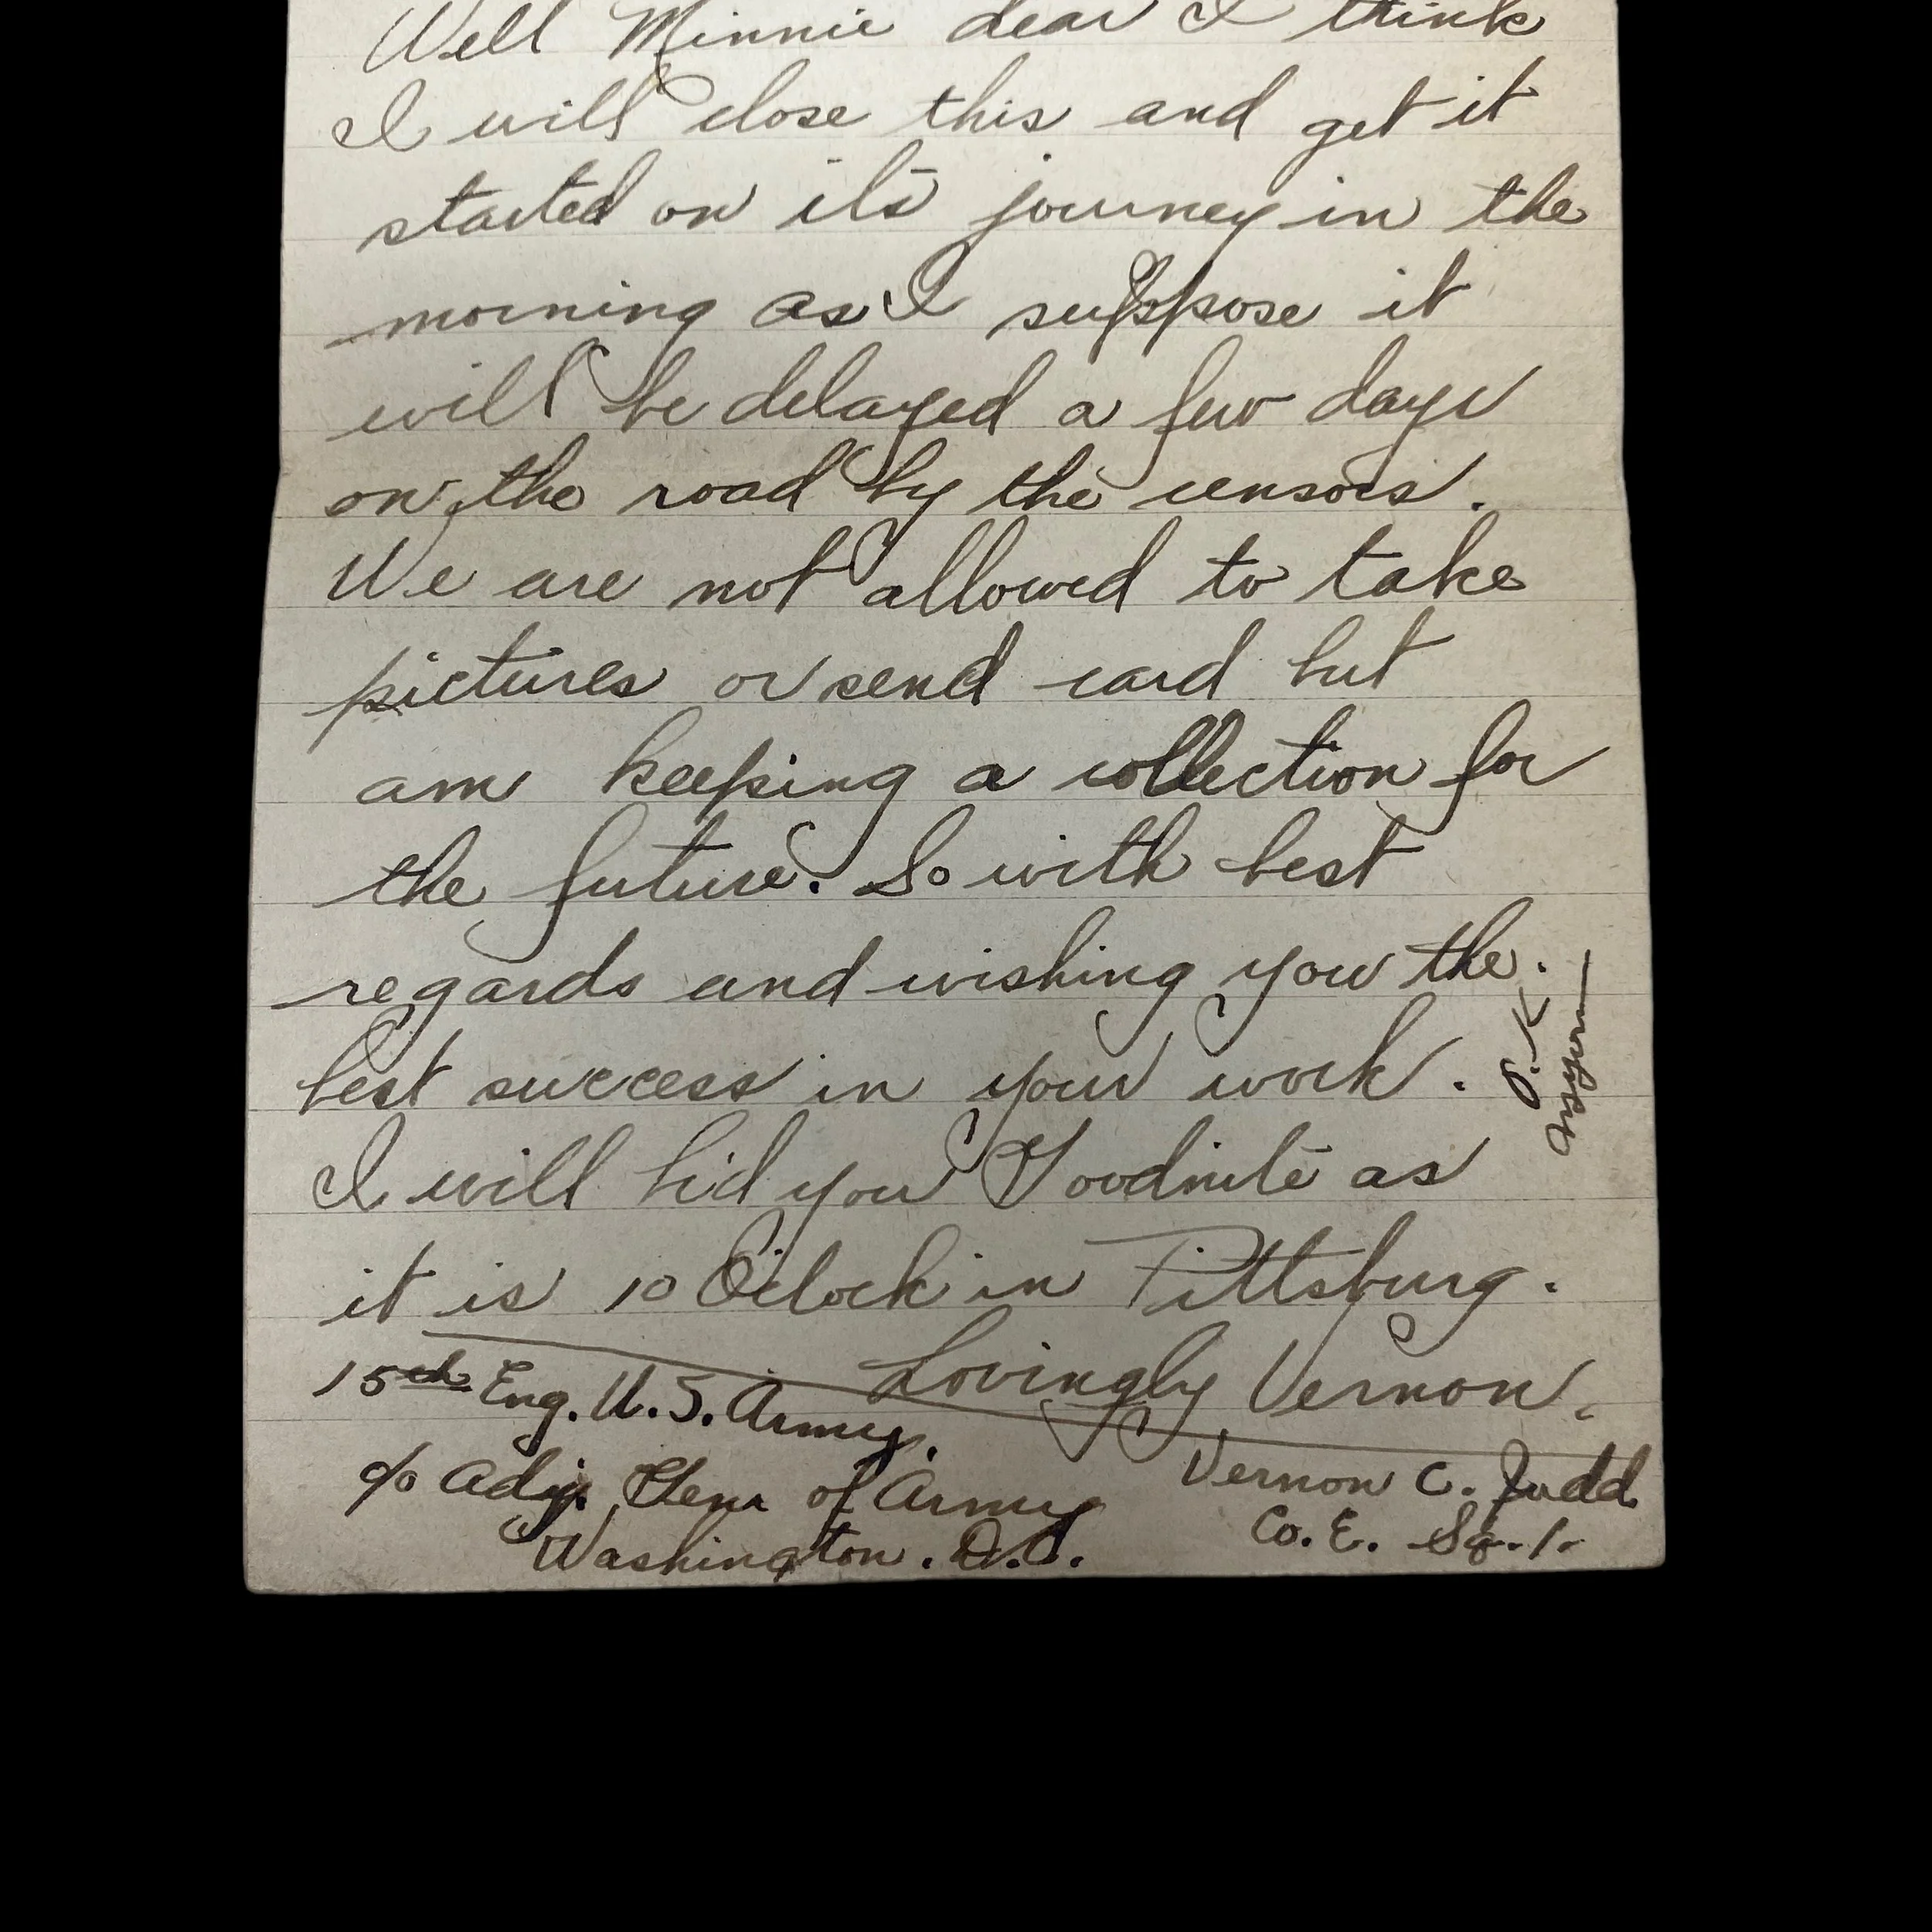 Well Minnie dear I think
I will close this and get it
started on it's journey in the
morning as I suppose it
will be delayed a few days
on the road by the censors.
We are not allowed to take
pictures or send card but
am keeping a collection for
the future. So with best
regards and wishing you the.
best success in your work.
O.K.
I will bid you Goodnite as
it is 10 O'clock in Pittsburg.
Lovingly Vernon.
15th Eng. U.S. Army.
c/o Adj. Genr of Army
Washington. D.C.
Vernon C. Judd
Co. E. Sq. 1.